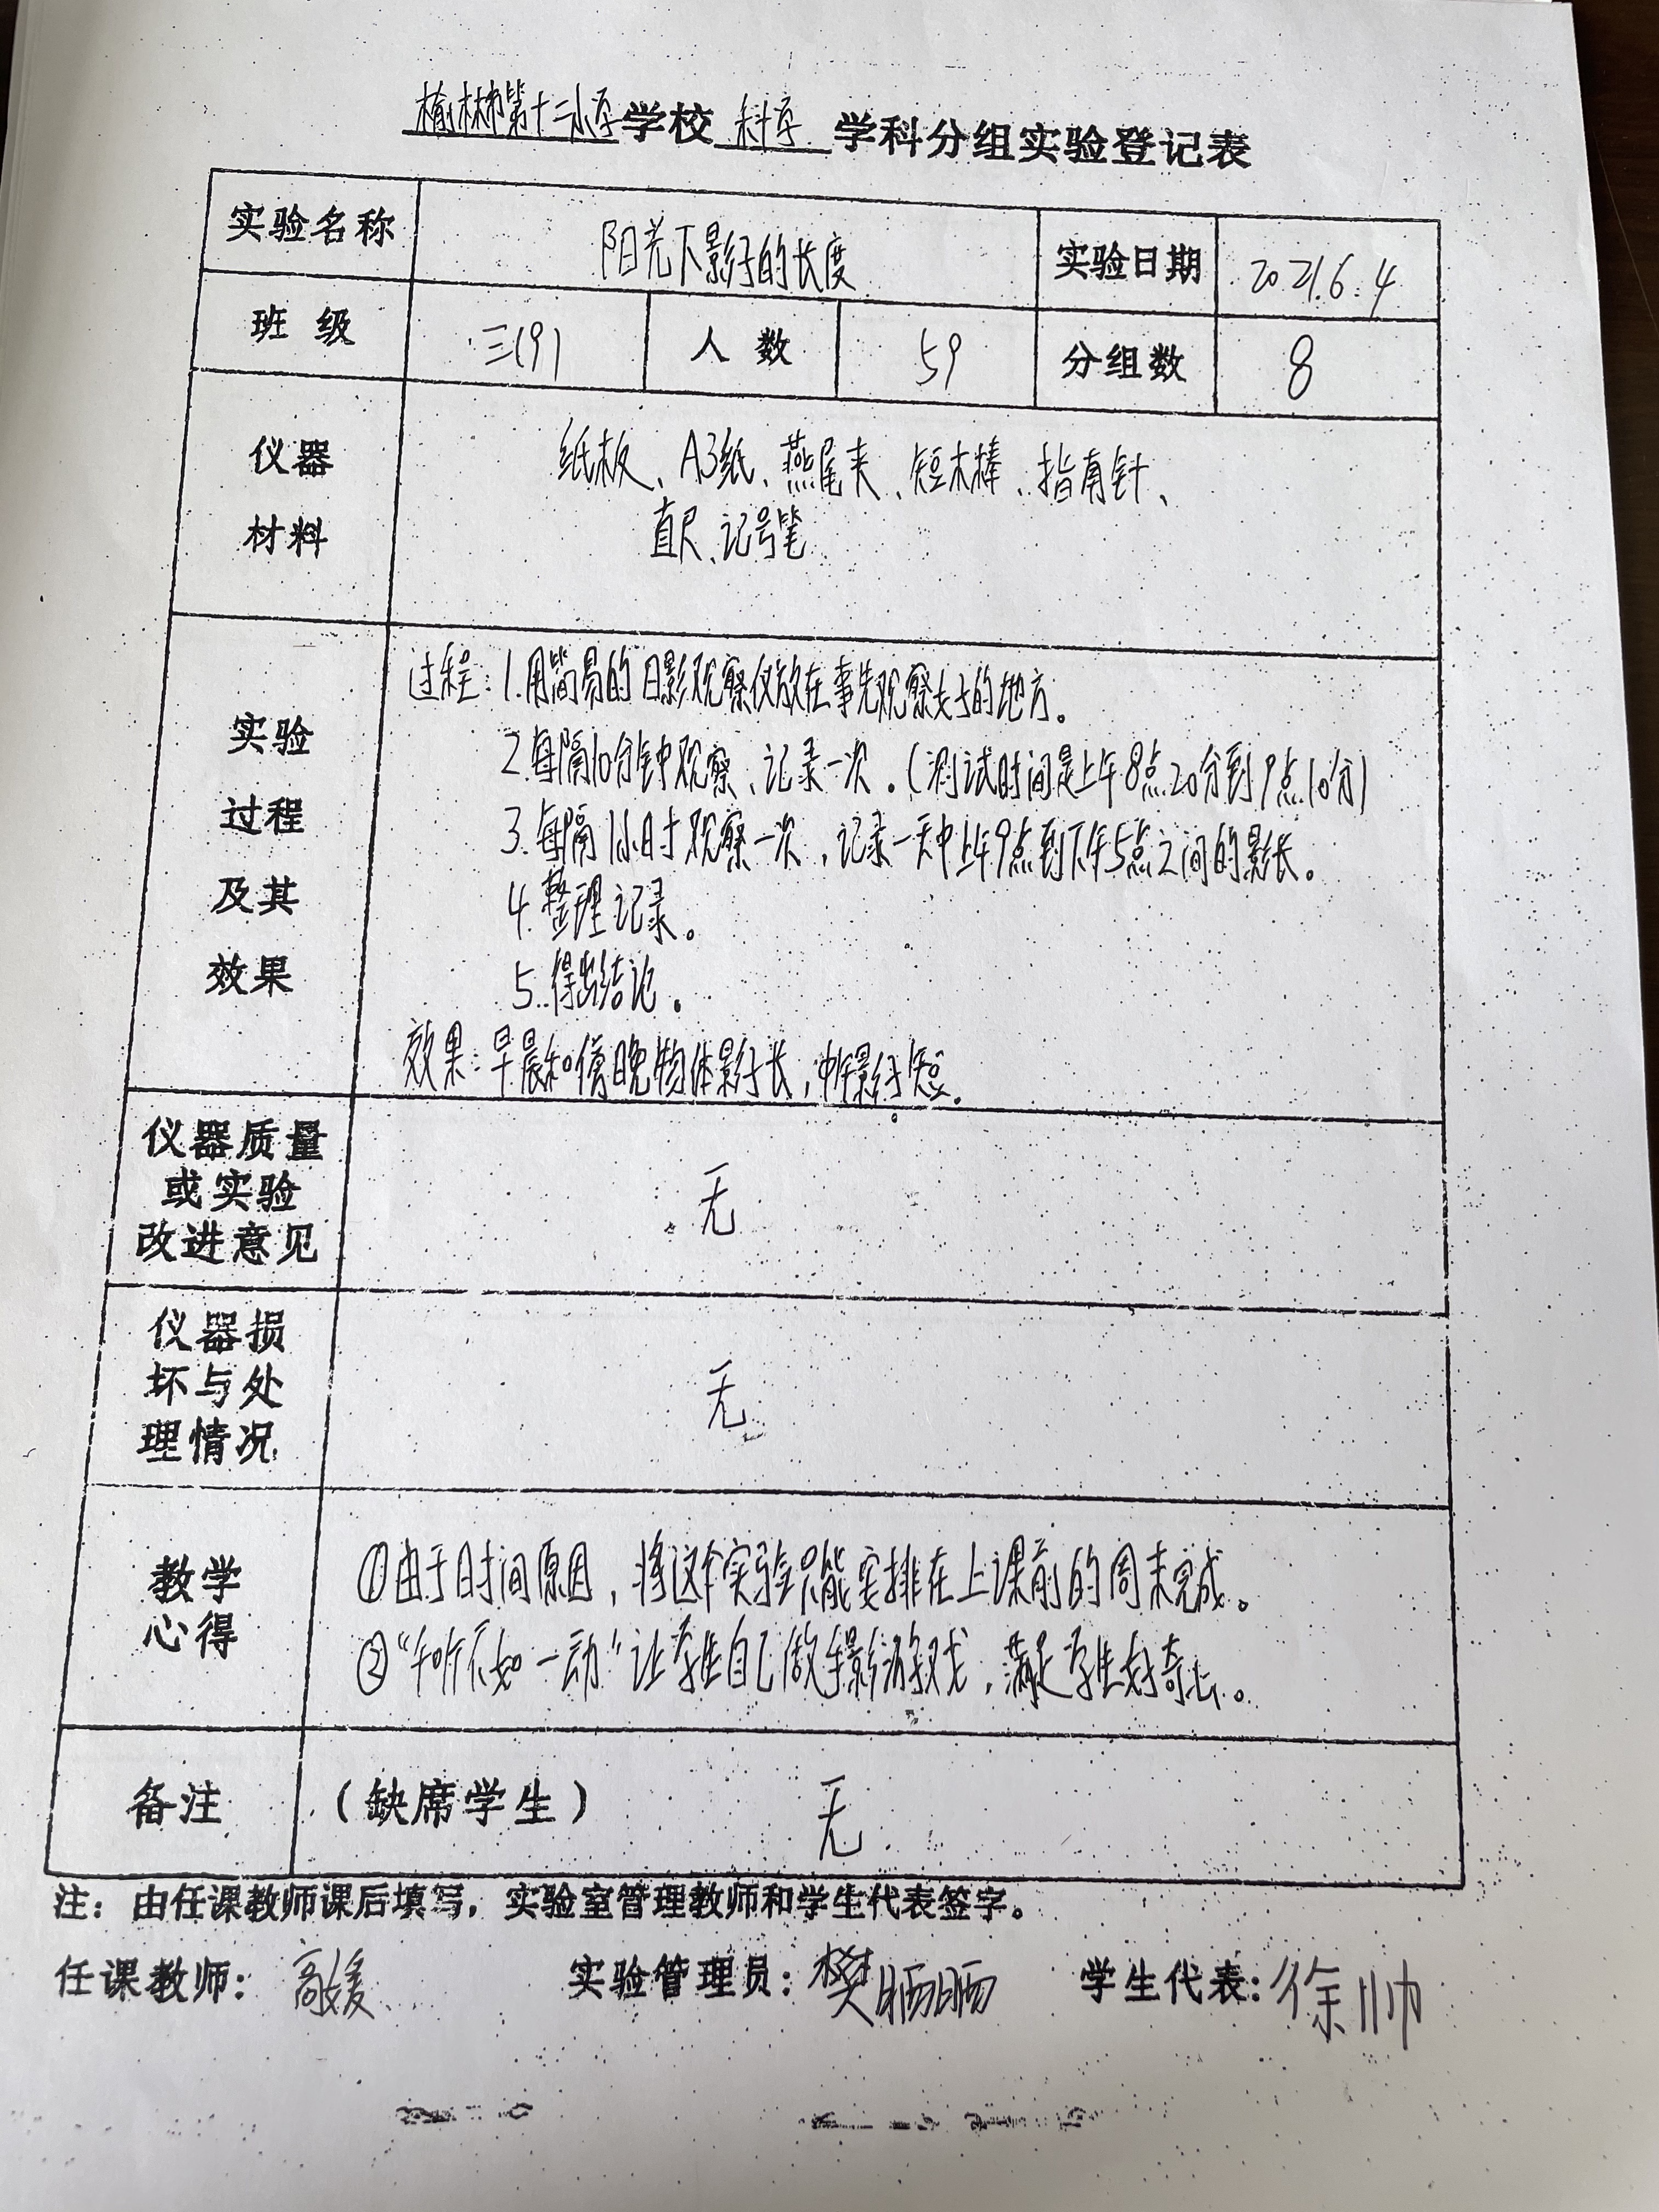 榆林市第十二小学学校 科学 学科分组实验登记表
实验名称 阳光下影子的长度 实验日期 2021.6.4
班级 三(9) 人数 59 分组数 8
仪器 材料
纸板、A3纸、燕尾夹、短木棒、指南针、
直尺、记号笔
实验 过程 及其 效果
过程:1.用简易的日影观察仪放在事先观察好的地方。
2.每隔10分钟观察、记录一次。(测试时间是上午8点20分到9点10分)
3.每隔1小时观察一次,记录一天中上午9点到下午5点之间的影长。
4.整理记录。
5.得出结论。
效果:早晨和傍晚物体影子长,中午影子短。
仪器质量
或实验
改进意见
无
仪器损
坏与处
理情况
无
教学
心得
①由于时间原因,将这个实验只能安排在上课前的周末完成。
②“千听不如一动”让学生自己做手影游戏,满足学生好奇心。
备注 (缺席学生) 无
注:由任课教师课后填写,实验室管理教师和学生代表签字。
任课教师:高媛 实验管理员:樊晒晒 学生代表:徐帅